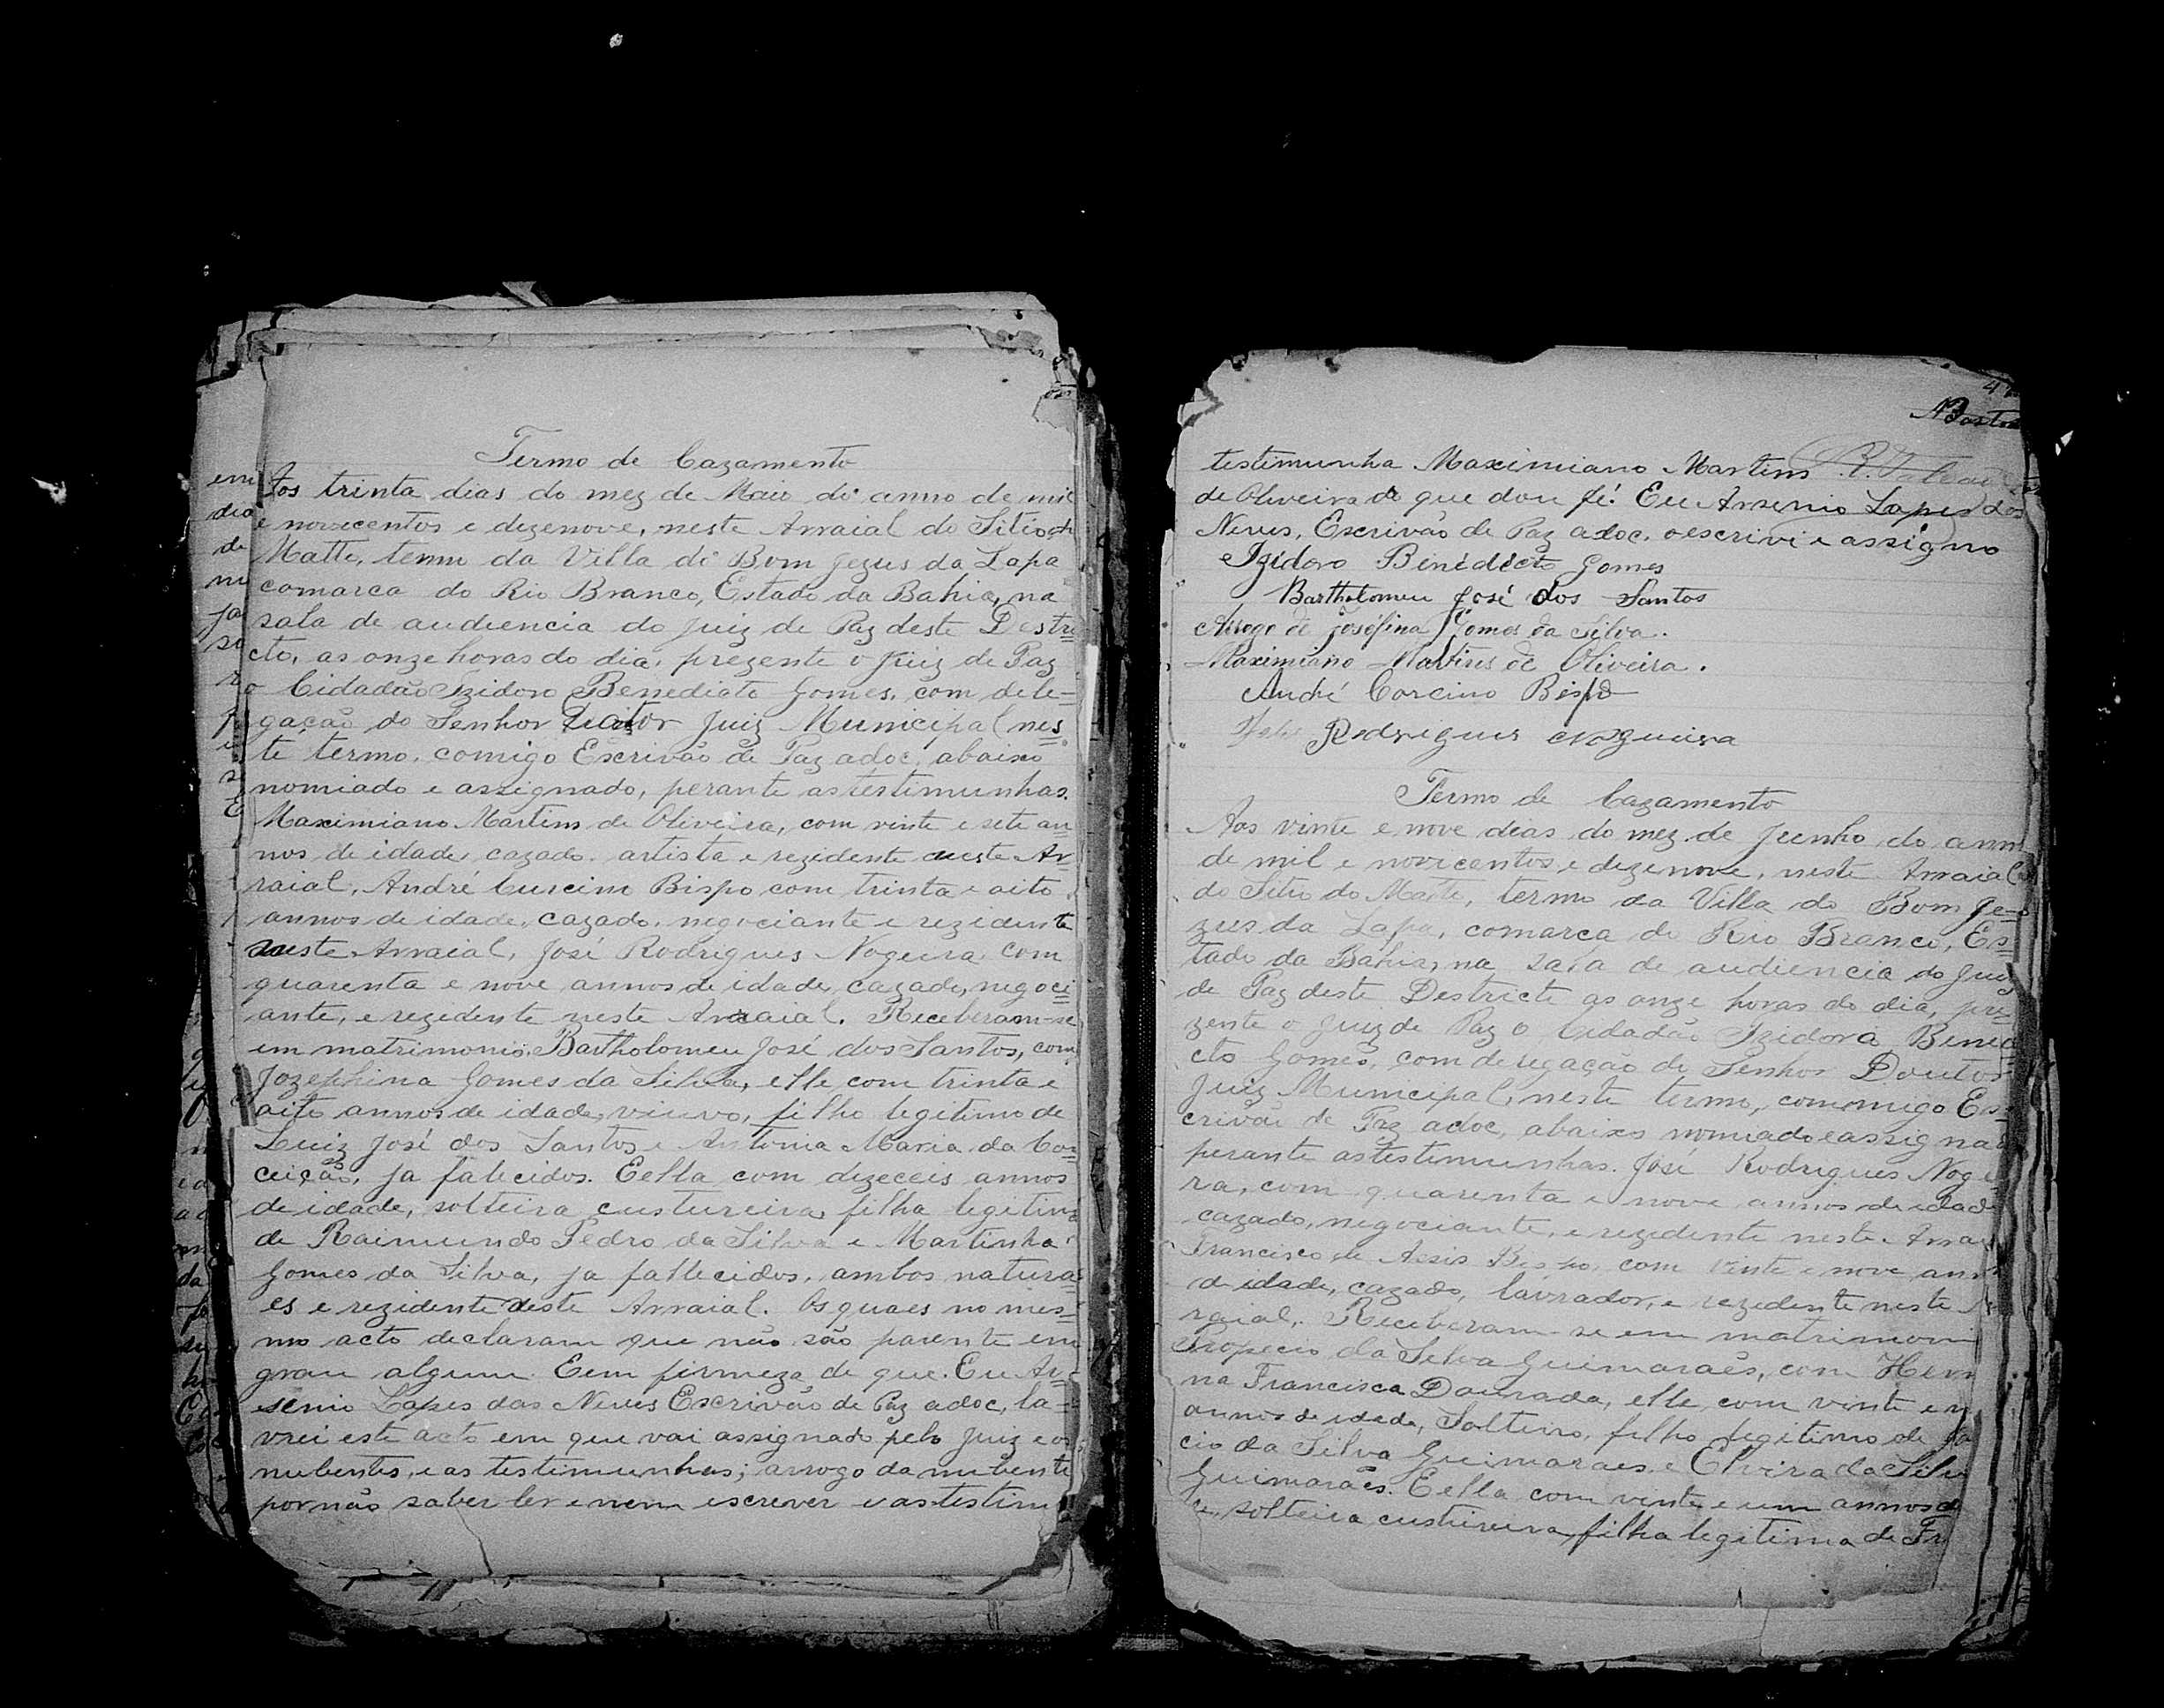 Termo de Cazamento
Aos trinta dias do mez de Maio do anno de mil
e novecentos e dezenove, neste Arraial do Sitio do
Matto, termo da Villa do Bom Jezus da Lapa
comarca do Rio Branco, Estado da Bahia, na
sala de audiencia do Juiz de Paz deste Destri=
cto, as onze horas do dia, prezente o Juiz de Paz
o Cidadão Izidoro Benedicto Gomes, com dele=
gação do Senhor Juiz Municipal nes=
te termo, comigo Escrivão de Paz adoc, abaixo
nomiado e assignado, perante as testimunhas.
Maximiano Martins de Oliveira, com vinte e sete an
nos de idade, cazado, artista e rezidente neste Ar=
raial, André Curcino Bispo com trinta e oito
annos de idade, cazado, negociante e rezidente
neste Arraial, José Rodrigues Nogeira, com
quarenta e nove annos de idade, cazado, negoci=
ante, e rezedente neste Arraial. Receberam-se
em matrimonio, Bartholomeu José dos Santos, com
Jozephina Gomes da Silva, elle com trinta e
oito annos de idade, viuvo, filho legitimo de
Luiz José dos Santos e Antonia Maria da Con=
ceição, ja falecidos. Eella com dezeceis annos
de idade, solteira, custureira, filha legitima
de Raimundo Pedro da Silva e Martinha
Gomes da Silva, ja fallecidos, ambos natura=
es e rezidente deste Arraial. Os quaes no mes=
mo acto declaram que não são parente em
grau algum. Eem firmeza de que. Eu Ar=
senio Lopes das Neves Escrivão de Paz adoc, la=
vrei este acto em que vai assignado pelo Juiz e os
nubentes, e as testimunhas; arrogo da nubente
por não saber ler e nem escrever e as testim
testimunha Maximiano Martins
de Oliveira do que dou fé. Eu Arsenio Lopes das
Neves, Escrivão de Paz adoc, o escrivi e assigno
Izidoro Benedicto Gomes
Bartholomeu José dos Santos
Arrogo de Josefina Gomes da Silva.
Maximiano Martins de Oliveira.
André Corcino Bispo
Rodrigues Nogueira
Termo de Cazamento
Aos vinte e nove dias do mez de Junho do anno
de mil e novecentos e dezenove, neste Arraial
do Sitio do Matto, termo da Villa do Bom Je=
zus da Lapa, comarca do Rio Branco, Es=
tado da Bahia, na sala de audiencia do Juiz
de Paz deste Destricto as onze horas do dia, pre=
zente o Juiz de Paz o Cidadão Izidoro Benedi
cto Gomes, com delegação do Senhor Doutor
Juiz Municipal, neste termo, commigo Es=
crivão de Paz adoc, abaixo nomiado e assignado
perante as testimunhas. José Rodrigues Noge
ra, com quarenta e nove annos de idade
cazado, negociante, e rezedente neste Arrai
Francisco de Assis Bispo, com vinte e nove ann
de idade, cazado, lavrador, e rezedente neste Ar
raial. Receberam-se em matrimoni
Tropecio da Silva Guimarães, com Herm
na Francisca Dourada, elle com vinte e n
annos de idade, Solteiro, filho legitimo de
cio da Silva Guimaraes e Elvira da Silva
Guimarães. Eella com vinte e um annos de
solteira custureira, filha legitima de Fr